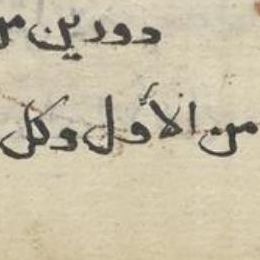 دورين من
من الأول وكل